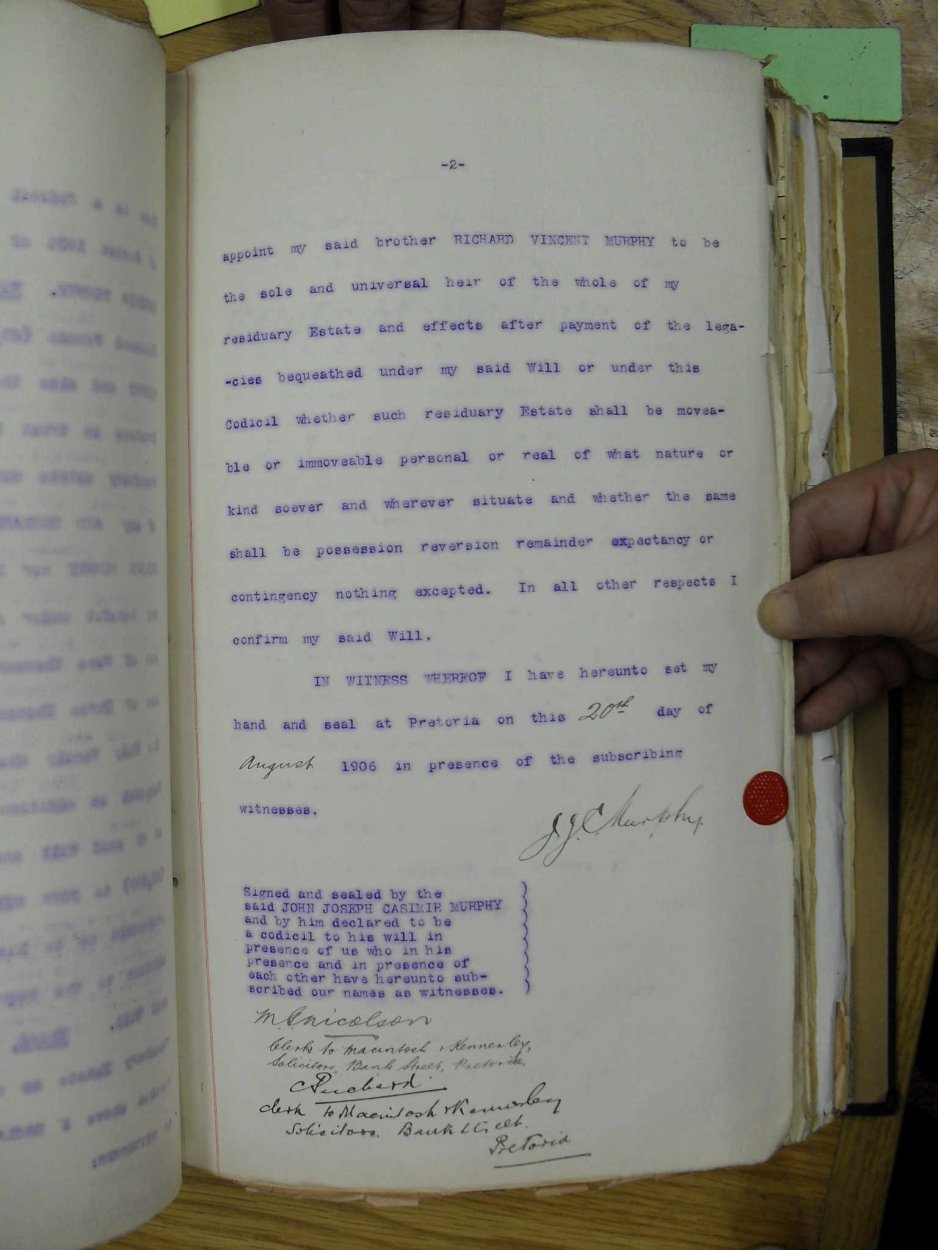 -2-
appoint my said brother RICHARD VINCENT MURPHY to be
the sole and universal heir of the whole of my
residuary Estate and effects after payment of the lega-
-cies bequeathed under my said Will or under this
Codicil whether such residuary Estate shall be movea-
ble or immoveable personal or real of what nature or
kind soever and wherever situate and whether the same
shall be possession reversion remainder expectancy or
contingency nothing excepted. In all other respects I
confirm my said Will.
IN WITNESS WHEREOF I have hereunto set my
hand and seal at Pretoria on this 20th day of
August 1906 in presence of the subscribing
witnesses.
J.J.C. Murphy.
Signed and sealed by the
said JOHN JOSEPH CASIMIR MURPHY
and by him declared to be
a codicil to his will in
presence of us who in his
presence and in presence of
each other have hereunto sub-
scribed our names as witnesses.
Nicolson
Clerk to Macintosh & Kennerley,
Solicitors, Bank Street, Pretoria.
Clerk to Macintosh & Kennerley
Solicitors. Bank Street.
Pretoria